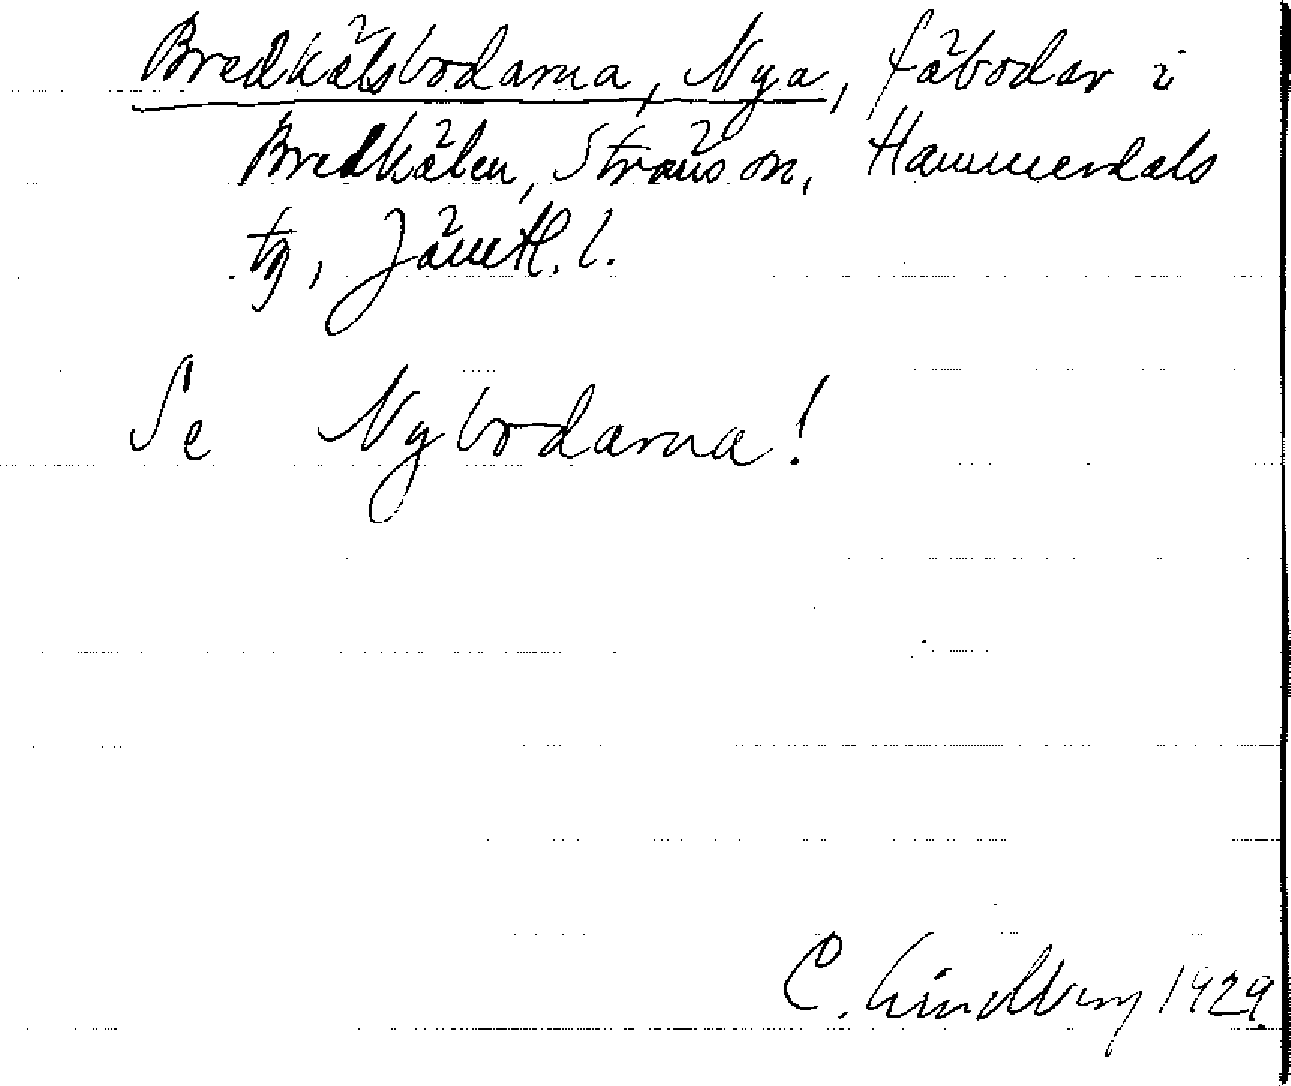 Bredkälsbodarna, Nya, fäbodar i
Bredkälen, Ströms sn, Hammerdals
tg, Jämtl. l.
Se Nybodarna!
C. Lindberg 1929.